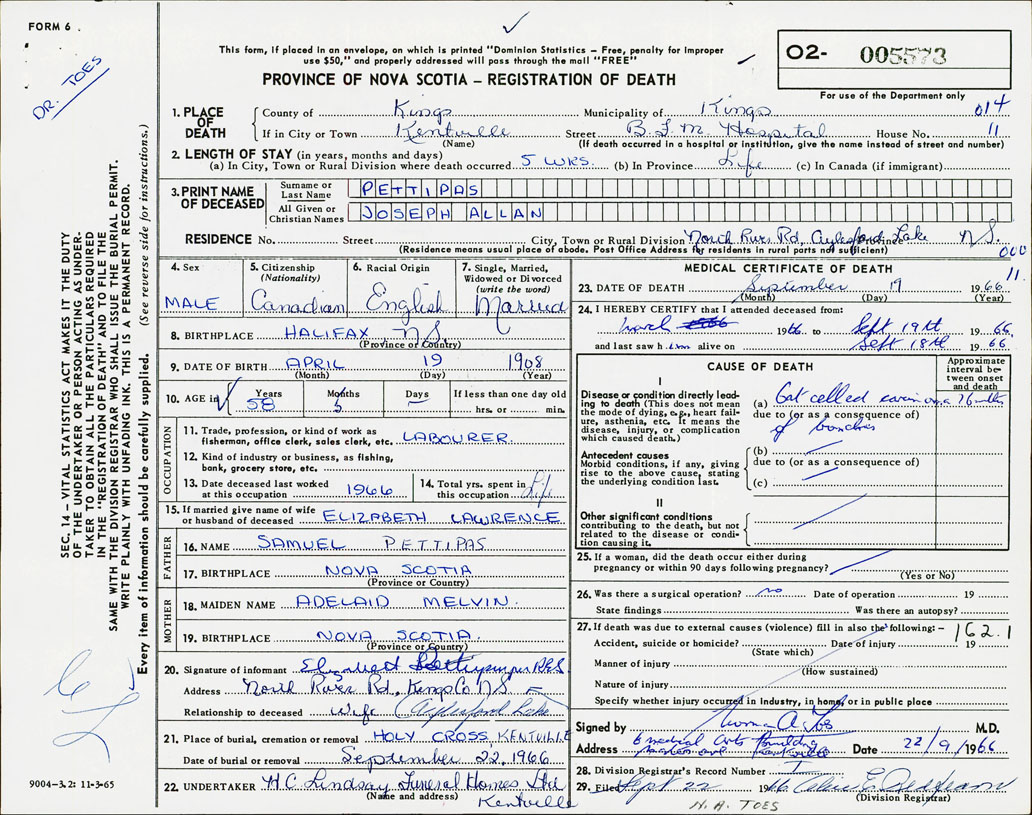 FORM 6
DR. TOES
This form, if placed in an envelope, on which is printed "Dominion Statistics – Free, penalty for improper
use $50," and properly addressed will pass through the mail "FREE"
PROVINCE OF NOVA SCOTIA – REGISTRATION OF DEATH
O2- 005573
For use of the Department only
SEC. 14 – VITAL STATISTICS ACT MAKES IT THE DUTY
OF THE UNDERTAKER OR PERSON ACTING AS UNDER-
TAKER TO OBTAIN ALL THE PARTICULARS REQUIRED
IN THE "REGISTRATION OF DEATH" AND TO FILE THE
SAME WITH THE DIVISION REGISTRAR WHO SHALL ISSUE THE BURIAL PERMIT.
WRITE PLAINLY WITH UNFADING INK. THIS IS A PERMANENT RECORD.
Every item of information should be carefully supplied. (See reverse side for instructions.)
1. PLACE OF DEATH
County of Kings Municipality of Kings 014
If in City or Town Kentville Street B.F.M. Hospital House No. 11
(Name) (If death occurred in a hospital or institution, give the name instead of street and number)
2. LENGTH OF STAY (in years, months and days)
(a) In City, Town or Rural Division where death occurred 5 WKS. (b) In Province Life (c) In Canada (if immigrant)
3. PRINT NAME OF DECEASED
Surname or Last Name PETTIPAS
All Given or Christian Names JOSEPH ALLAN
RESIDENCE No. Street City, Town or Rural Division North River Rd, Aylesford Lake Province N.S.
(Residence means usual place of abode. Post Office Address for residents in rural parts not sufficient) 000
11.
4. Sex MALE
5. Citizenship (Nationality) Canadian
6. Racial Origin English
7. Single, Married, Widowed or Divorced (write the word) Married
8. BIRTHPLACE HALIFAX N.S.
(Province or Country)
9. DATE OF BIRTH APRIL 19 1908
(Month) (Day) (Year)
10. AGE in Years 58 Months 5 Days – If less than one day old hrs. or min.
OCCUPATION
11. Trade, profession, or kind of work as
fisherman, office clerk, sales clerk, etc. LABOURER
12. Kind of industry or business, as fishing,
bank, grocery store, etc.
13. Date deceased last worked
at this occupation 1966
14. Total yrs. spent in
this occupation Life
15. If married give name of wife
or husband of deceased ELIZABETH LAWRENCE
FATHER
16. NAME SAMUEL PETTIPAS
17. BIRTHPLACE NOVA SCOTIA
(Province or Country)
MOTHER
18. MAIDEN NAME ADELAID MELVIN.
19. BIRTHPLACE NOVA SCOTIA.
(Province or Country)
20. Signature of informant Elizabeth Pettipas
Address North River Rd, Kings Co N.S
Relationship to deceased Wife (Aylesford Lake
21. Place of burial, cremation or removal HOLY CROSS, KENTVILLE
Date of burial or removal September 22, 1966
22. UNDERTAKER H C Lindsay Funeral Homes Ltd
(Name and address) Kentville
9004-3.2: 11-3-65
MEDICAL CERTIFICATE OF DEATH
23. DATE OF DEATH September 19 1966
(Month) (Day) (Year)
24. I HEREBY CERTIFY that I attended deceased from:
1966 to Sept 19th 1966
and last saw him alive on Sept 18th 1966
CAUSE OF DEATH
Approximate interval between onset and death
I
Disease or condition directly lead-
ing to death (This does not mean
the mode of dying, e.g., heart fail-
ure, asthenia, etc. It means the
disease, injury, or complication
which caused death.)
(a) Oat celled carcinoma
due to (or as a consequence of)
of bronchus
Antecedent causes
Morbid conditions, if any, giving
rise to the above cause, stating
the underlying condition last.
(b)
due to (or as a consequence of)
(c)
II
Other significant conditions
contributing to the death, but not
related to the disease or condi-
tion causing it.
25. If a woman, did the death occur either during
pregnancy or within 90 days following pregnancy?
(Yes or No)
26. Was there a surgical operation? no Date of operation 19
State findings Was there an autopsy?
27. If death was due to external causes (violence) fill in also the following: – 162.1
Accident, suicide or homicide? Date of injury 19
(State which)
Manner of injury
(How sustained)
Nature of injury
Specify whether injury occurred in Industry, in home, or in public place
Signed by Thomas A. Toes M.D.
Address 6 medical Arts Building Kentville Date 22/9/1966
28. Division Registrar's Record Number
29. Filed Sept 22 1966
(Division Registrar)
N.A. TOES